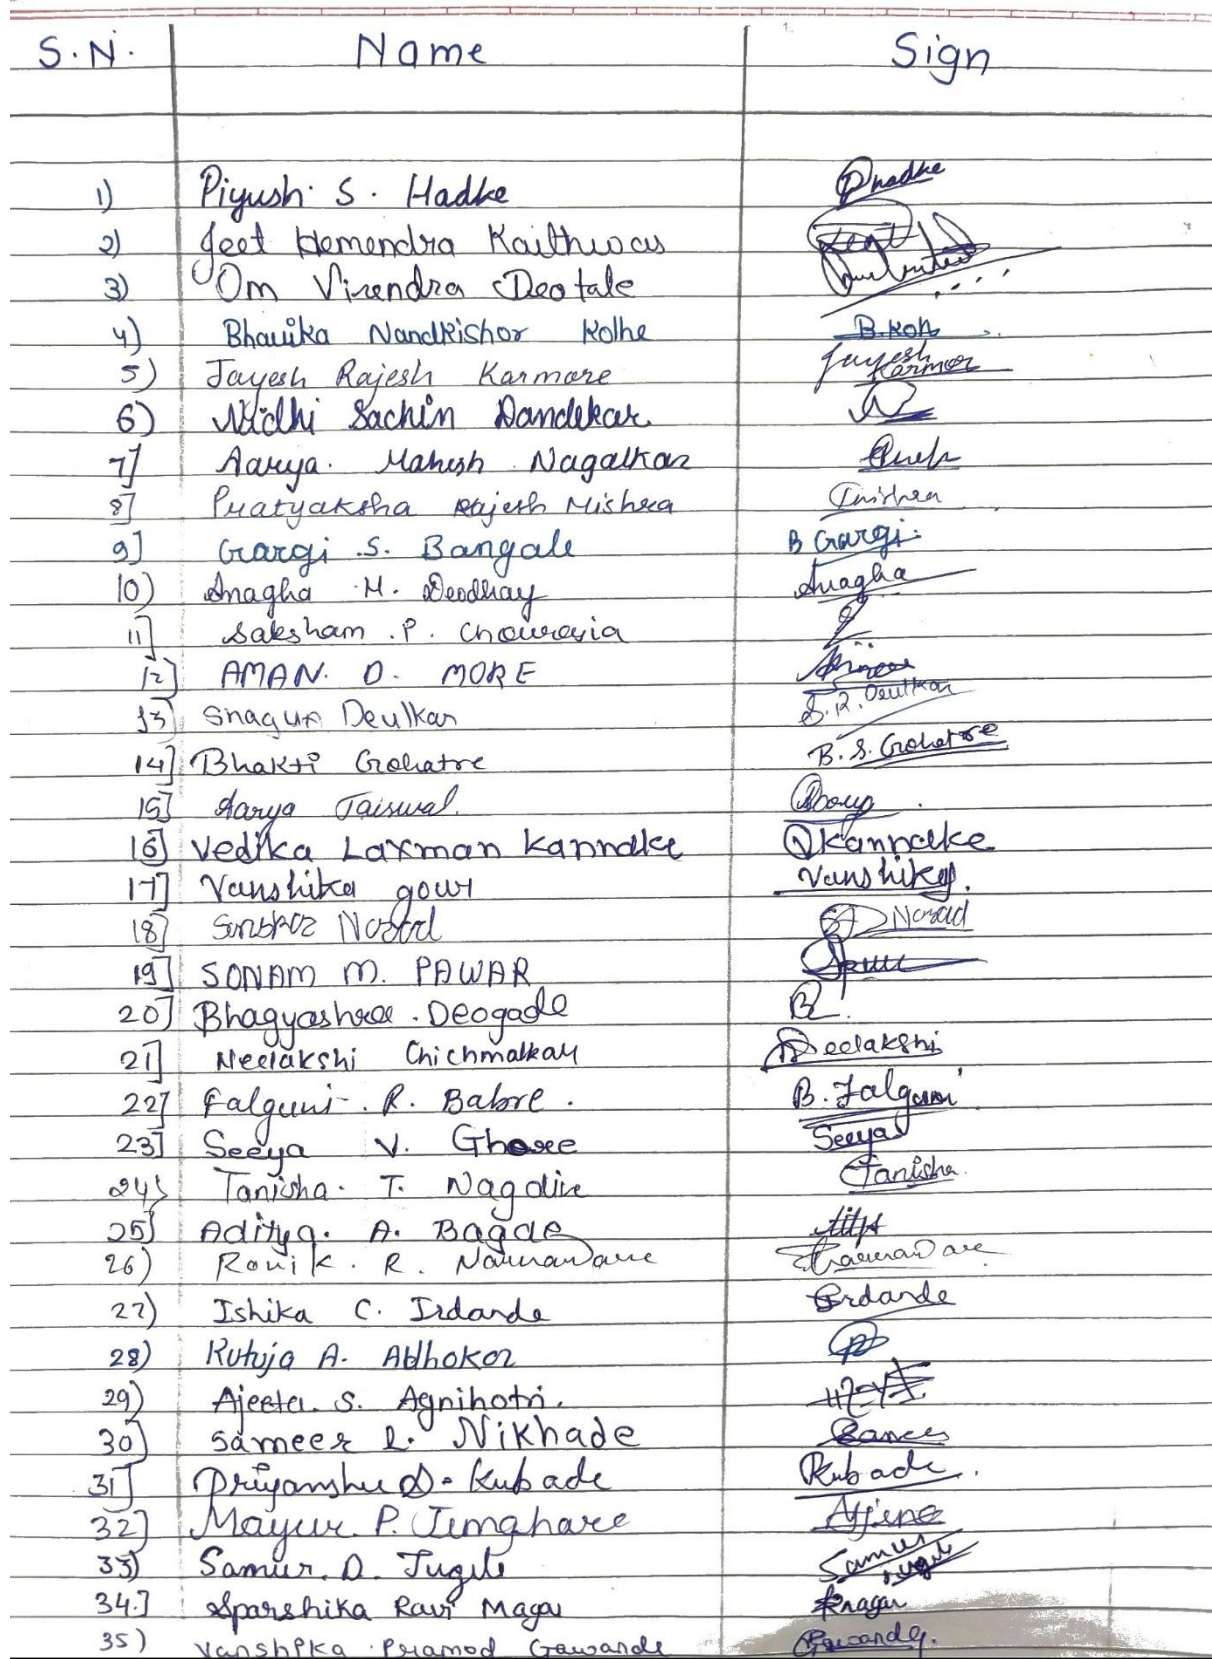 S.N. Name Sign
1) Piyush S. Hadke Phadke
2) Jeet Hemendra Kaithwas Jeet
3) Om Virendra Deotale
4) Bhavika Nandkishor Kolhe B.Kolh
5) Jayesh Rajesh Karmore Jayesh Karmor
6) Nidhi Sachin Dandekar
7] Aarya. Mahesh Nagalkar
8] Pratyaksha Rajesh Mishra
9] Gargi .S. Bangale B Gargi.
10) Anagha M. Deodhay Anagha
11] Saksham .P. Chourasia
12] AMAN. D. MORE
13) Shagun Deulkar S.R. Deulkar
14] Bhakti Gohatre B. S. Gohatre
15] Aarya Jaiswal.
16] Vedika Laxman Kannake VKannake
17] Vanshika gour Vanshika.
18] Nozad
19] SONAM M. PAWAR
20] Bhagyashree . Deogade B.
21] Neelakshi Chichmalkar Neelakshi
22] Falguni . R. Babre. B. Falguni
23] Seeya V. Ghore Seeya
24} Tanisha. T. Nagdive Tanisha.
25] Aditya. A. Bagde
26) Ronik. R. Narnaware Narnaware
27) Ishika C. Irdande Irdande
28) Rutuja A. Adhokor
29) Ajeeta. S. Agnihotri.
30) Sameer R. Nikhade
31] Priyanshu D. Kubade Kubade.
32] Mayur P. Jimghare
33) Samir. D. Jugele Samir Jugele
34.] Sparshika Ravi Magar
35) Vanshika Pramod Gawande Gawande.